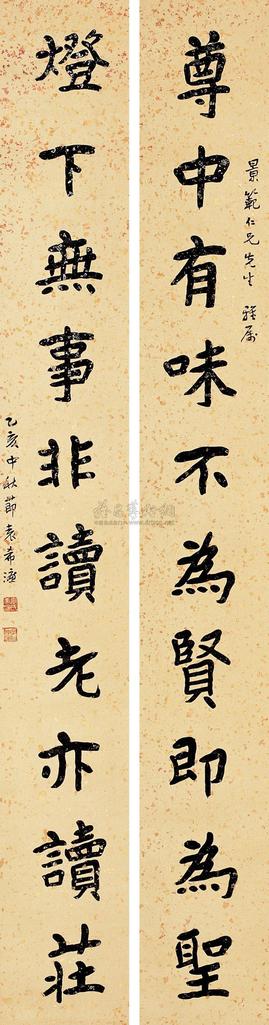 景範仁兄先生 雅屬
尊中有味不為賢即為聖
燈下無事非讀老亦讀莊
乙亥中秋節袁希濂